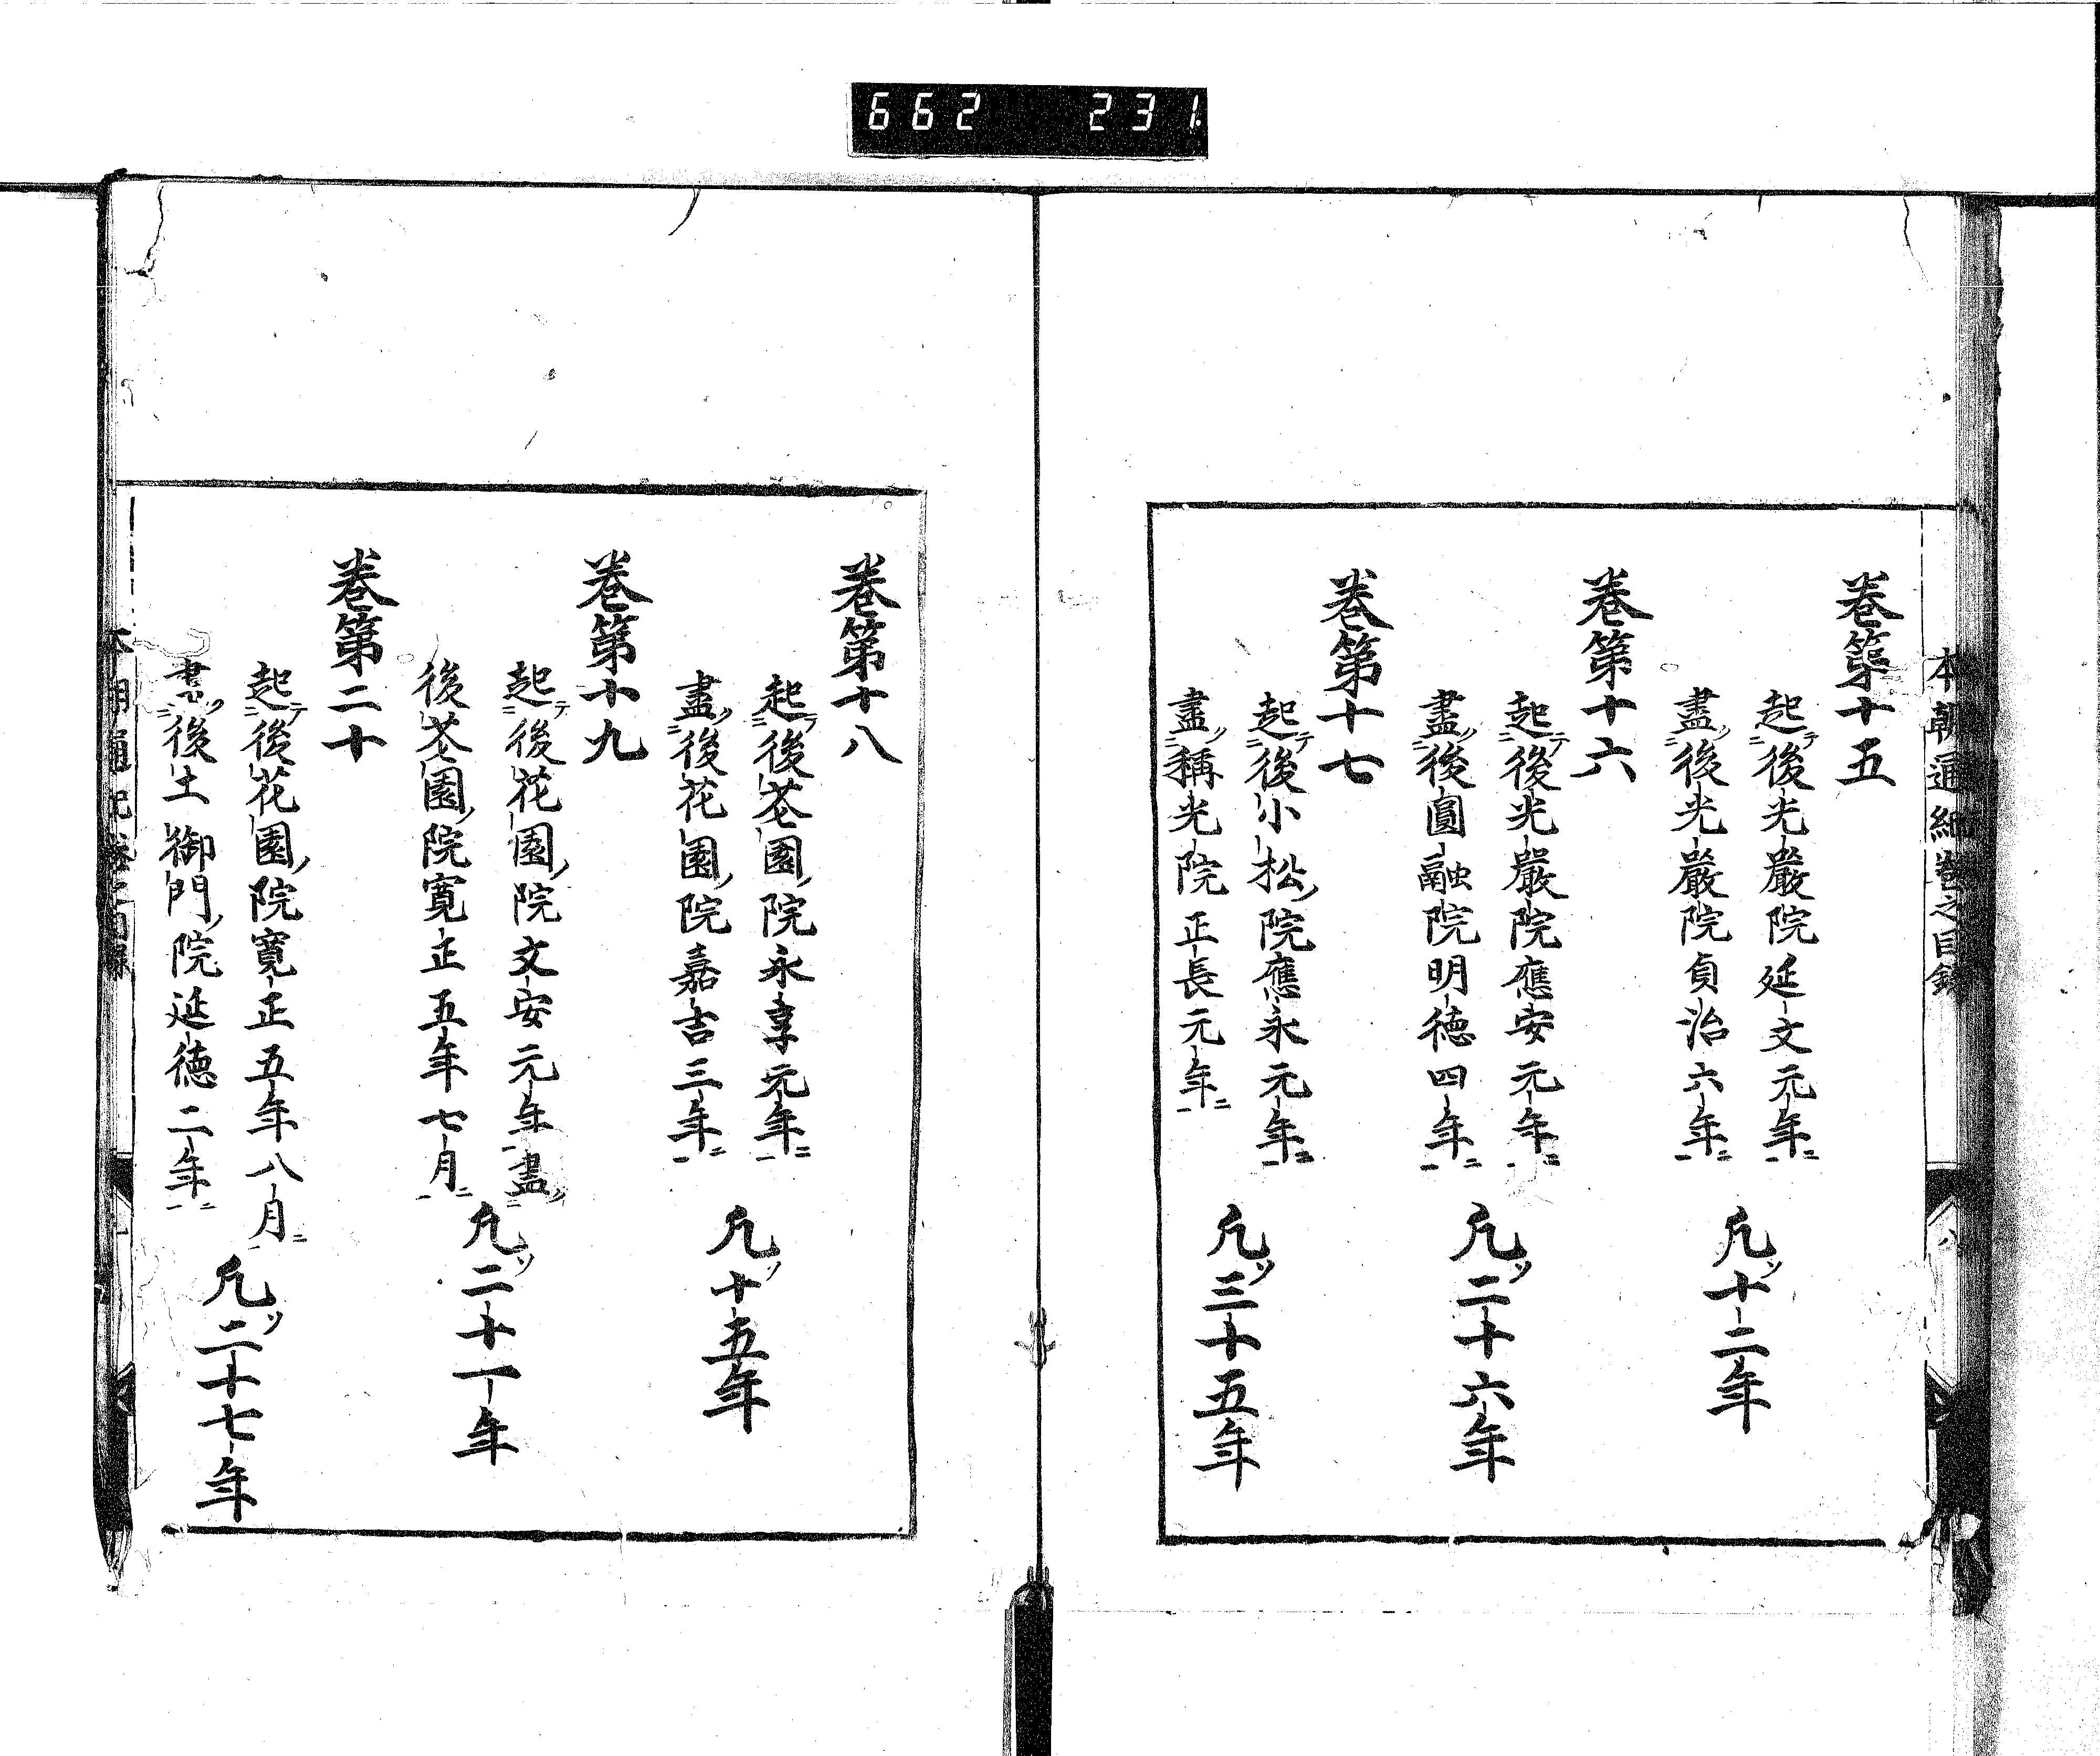 662 231
本朝通紀巻之目録
巻第十五
起テ後光嚴院延文元年ニ
盡ク後光嚴院貞治六年ニ
凢ソ十二年
巻第十六
起テ後光嚴院應安元年ニ
盡ク後圓融院明德四年ニ
凢ソ二十六年
巻第十七
起テ後小松ノ院應永元年ニ
盡ク稱光院正長元年ニ
凢ソ三十五年
巻第十八
起テ後花園ノ院永享元年ニ
盡ク後花園ノ院嘉吉三年ニ
凢ソ十五年
巻第十九
起テ後花園ノ院文安元年盡ク
後花園ノ院寛正五年七月ニ
凢ソ二十一年
巻第二十
起テ後花園ノ院寛正五年八月ニ
盡ク後土御門ノ院延德二年ニ
凢ソ二十七年